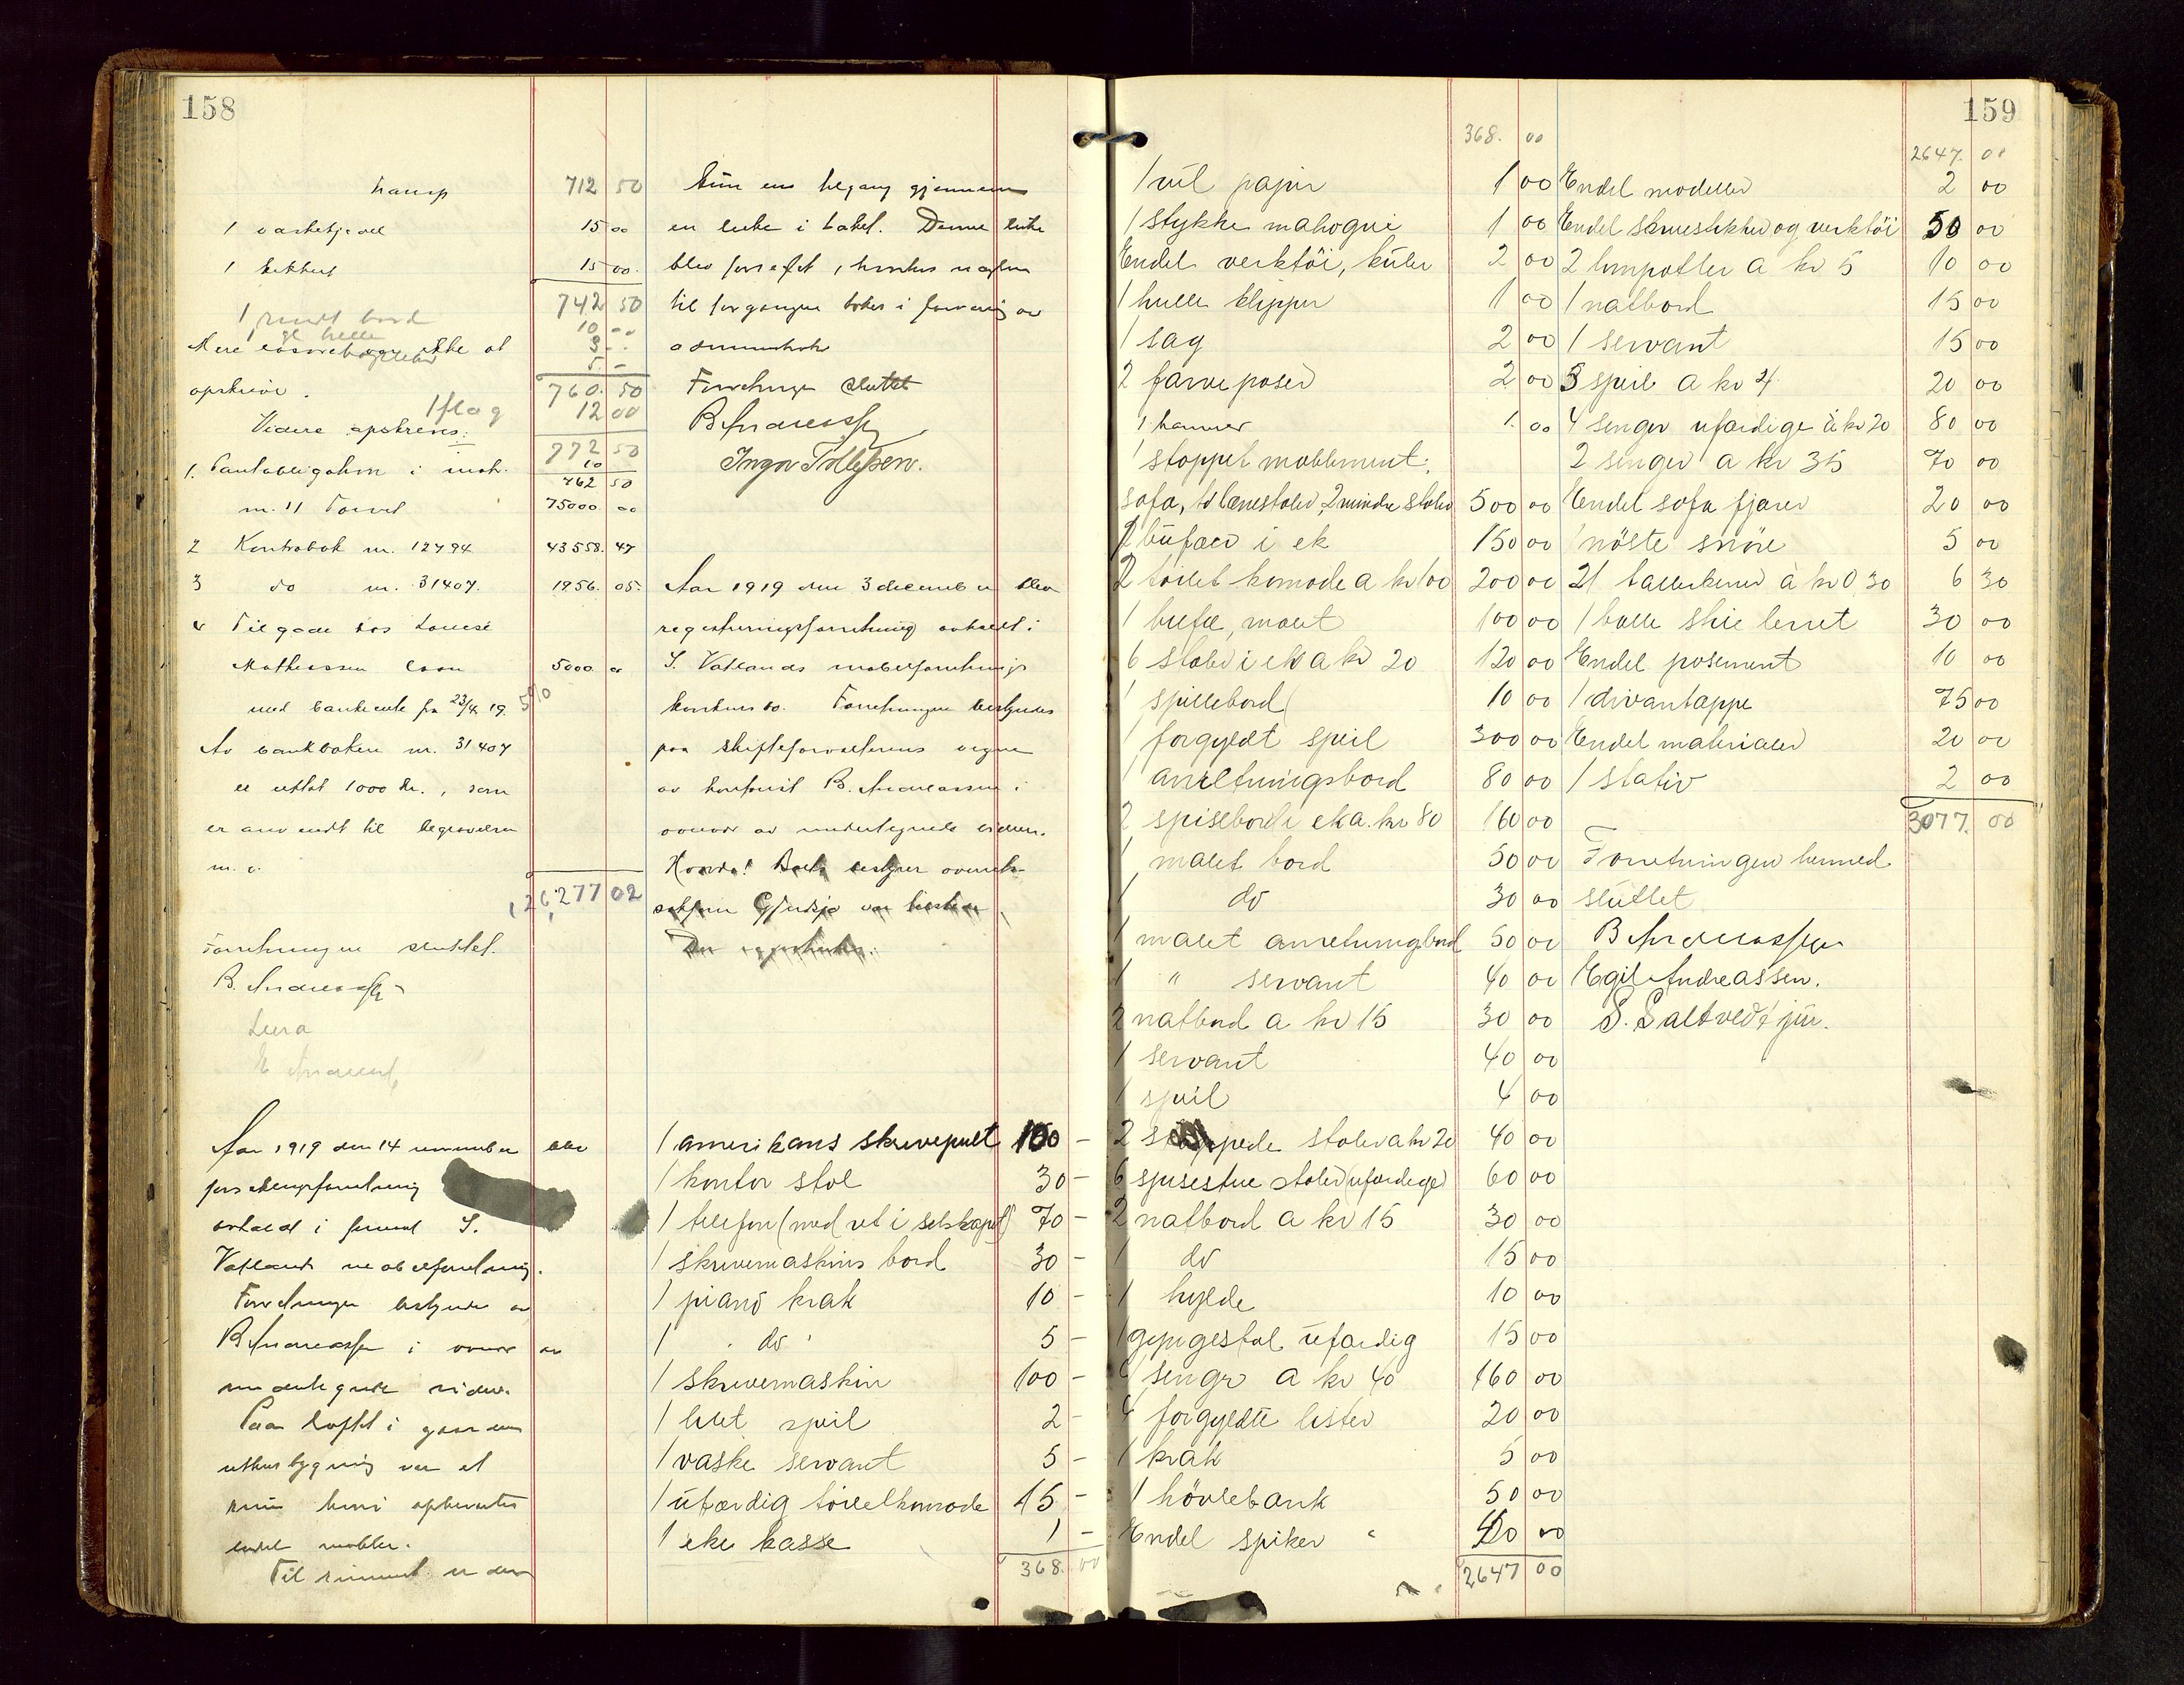 158
transp 712 50
1 vaskekjedel 15 00
1 kikkert 15 00
742 50
1 rundt bord 10 00
Mere løsøre begjæres ikke at
opskrive. 760. 50
1 flag 12 00
Videre opskreves: 772 50
10
1. Pantobligation i matr. 762 50
m. 11 Torvet 75000 00
2 Kontrabok nr. 12794 43558. 47
3 do nr. 31407. 1956. 05.
4 Tilgode hos Louise
Mathiassen laan 5000 00
med bankrente fra 23/4 19. 5%
Av bankboken nr. 31407
er uttat 1000 kr., som
er anvendt til begravelsen
m. v.
126,277 02
Forretningen sluttet.
B. Andreassen
Lura
E Andreassen
Aar 1919 den 14 november blev
forseglingsforretning
avholdt i firmaet S.
Vatlands møbelforretning.
Forretningen bestyredes av
B Andreassen i overvær av
undertegnede vidner.
Paa loftet i gaardens
uthusbygning var et
rum hvori opbevartes
endel møbler.
Til rummet er der
kun en tilgang gjennem
en luke i taket. Denne luke
blev forseglet, hvorhos nøglen
til forgangen tokes i forvaring av
administrator
Forretningen sluttet
B Andreassen
Inga Tollefsen.
Aar 1919 den 3 december blev
registreringsforretning avholdt i
S. Vatlands møbelforretnings
konkursbo. Forretningen bestyredes
paa skifteforvalterens vegne
av kontorist B. Andreassen i
overvær av undertegnede vidner.
1 amerikans skrivepult 100 –
1 kontor stol 30 –
1 telefon (med ret i selskapet) 70 –
1 skrivemaskins bord 30 –
1 piano krak 10 –
1 do 5 –
1 skrivemaskin 100 –
1 litet speil 2 –
1 vaske servant 5 –
1 ufærdig toiletkomode 15 –
1 eke kasse 1 –
368. 00
159
368. 00
1 rul papir 1 00
1 stykke mahogni 1 00
Endel verktöi, kuler 2 00
1 hulle klipper 1 00
1 sag 2 00
2 farveposer 2 00
1 hammer 1. 00
1 stoppet moblement:
sofa, to lænestoler, 2 mindre stoler 500 00
1 bufaer i ek 150 00
2 toilet komode a kr 100 200 00
1 buffe, malt 100 00
6 stoler i ek a kr 20 120 00
1 spillebord 10 00
1 forgyldt speil 300 00
1 anretningsbord 80 00
2 spiseborde ek a. kr 80 160 00
1 malet bord 50 00
1 do 30 00
1 malet anretningsbord 50 00
1 " servant 40 00
2 natbord a kr 15 30 00
1 servant 40 00
1 speil 4 00
2 stoppede stoler a kr 20 40 00
6 spisestue stoler (ufærdige) 60 00
2 natbord a kr 15 30 00
1 do 15 00
1 hylde 10 00
1 gyngestol ufærdig 15 00
4 senger a kr 40 160 00
4 forgyldte lister 20 00
1 krak 5 00
1 hövlebank 50 00
Endel spiker 40 00
2647 00
2647. 00
Endel modeller 2 00
Endel skruestikker og verktöi 50 00
2 limpotter a kr 5 10 00
1 natbord 15 00
1 servant 15 00
5 speil a kr 4. 20 00
4 senger ufærdige à kr 20 80 00
2 senger a kr 35 70 00
Endel sofa fjærer 20 00
1 nöste snöre 5 00
21 tallerkener à kr 0,30 6 30
1 balle strie lerret 30 00
Endel posement 10 00
1 divantæppe 75 00
Endel materialer 20 00
1 stativ 2 00
3077. 00
Forretningen hermed
sluttet
B Andreassen
Egil Andreassen.
S. Saltvedt jun.